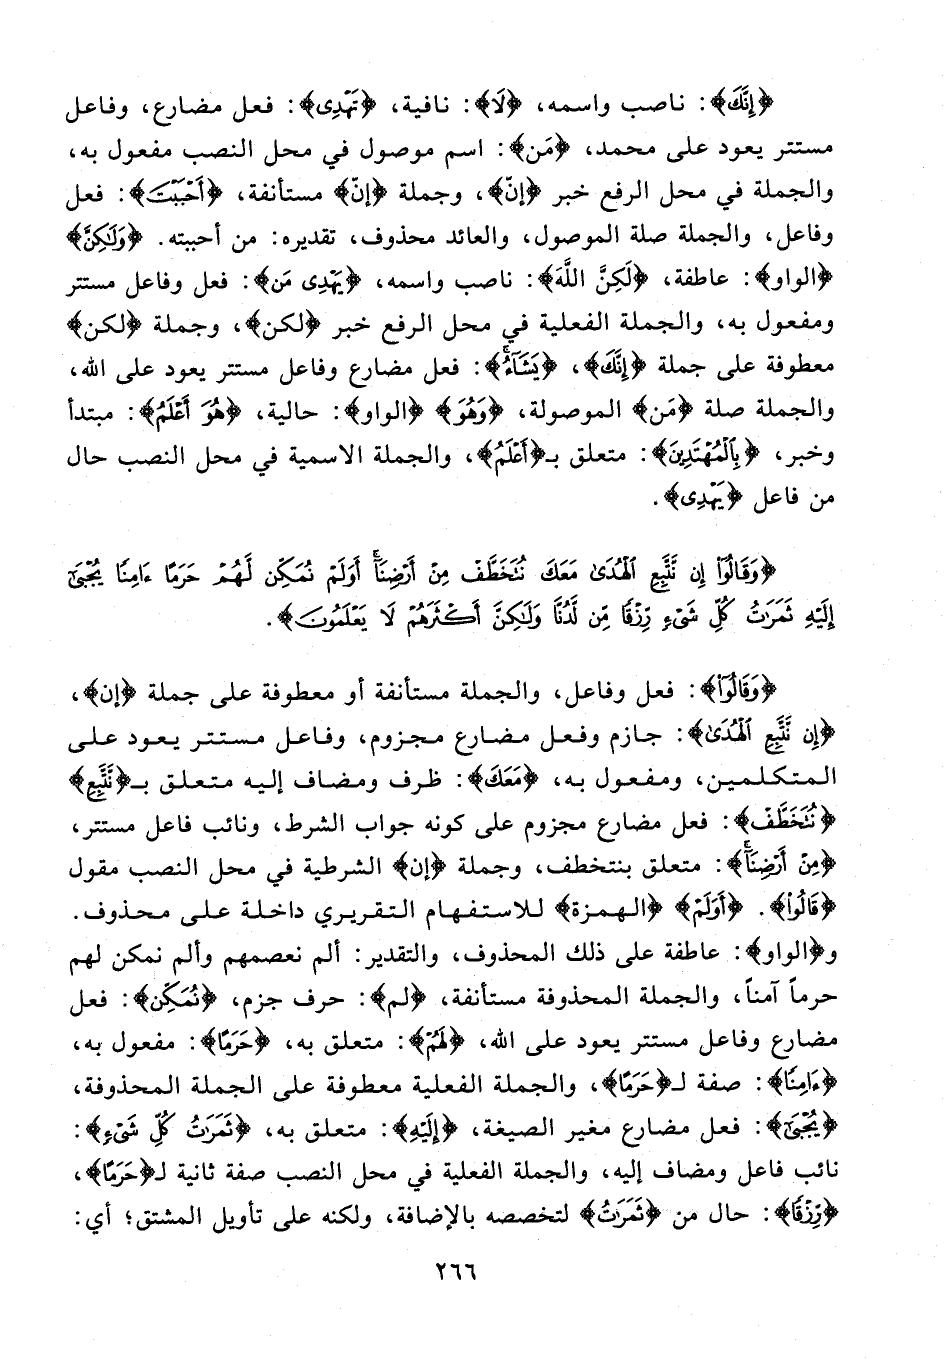 ﴿إِنَّكَ﴾: ناصب واسمه، ﴿لَا﴾: نافية، ﴿تَهْدِى﴾: فعل مضارع، وفاعل
مستتر يعود على محمد، ﴿مَن﴾: اسم موصول في محل النصب مفعول به،
والجملة في محل الرفع خبر ﴿إنّ﴾، وجملة ﴿إنّ﴾ مستأنفة، ﴿أَحْبَبْتَ﴾: فعل
وفاعل، والجملة صلة الموصول، والعائد محذوف، تقديره: من أحببته. ﴿وَلَٰكِنَّ﴾
﴿الواو﴾: عاطفة، ﴿لَكِنَّ اللَّهَ﴾: ناصب واسمه، ﴿يَهْدِى مَن﴾: فعل وفاعل مستتر
ومفعول به، والجملة الفعلية في محل الرفع خبر ﴿لكن﴾، وجملة ﴿لكن﴾
معطوفة على جملة ﴿إِنَّكَ﴾، ﴿يَشَآءُ﴾: فعل مضارع وفاعل مستتر يعود على الله،
والجملة صلة ﴿مَن﴾ الموصولة، ﴿وَهُوَ﴾ ﴿الواو﴾: حالية، ﴿هُوَ أَعْلَمُ﴾: مبتدأ
وخبر، ﴿بِٱلْمُهْتَدِينَ﴾: متعلق بـ﴿أَعْلَمُ﴾، والجملة الاسمية في محل النصب حال
من فاعل ﴿يَهْدِى﴾.
﴿وَقَالُوٓا۟ إِن نَّتَّبِعِ ٱلْهُدَىٰ مَعَكَ نُتَخَطَّفْ مِنْ أَرْضِنَآ أَوَلَمْ نُمَكِّن لَّهُمْ حَرَمًا ءَامِنًا يُجْبَىٰٓ
إِلَيْهِ ثَمَرَٰتُ كُلِّ شَىْءٍ رِّزْقًا مِّن لَّدُنَّا وَلَٰكِنَّ أَكْثَرَهُمْ لَا يَعْلَمُونَ﴾.
﴿وَقَالُوٓا۟﴾: فعل وفاعل، والجملة مستأنفة أو معطوفة على جملة ﴿إن﴾،
﴿إِن نَّتَّبِعِ ٱلْهُدَىٰ﴾: جازم وفعل مضارع مجزوم، وفاعل مستتر يعود على
المتكلمين، ومفعول به، ﴿مَعَكَ﴾: ظرف ومضاف إليه متعلق بـ﴿نَّتَّبِعِ﴾
﴿نُتَخَطَّفْ﴾: فعل مضارع مجزوم على كونه جواب الشرط، ونائب فاعل مستتر،
﴿مِنْ أَرْضِنَآ﴾: متعلق بنتخطف، وجملة ﴿إن﴾ الشرطية في محل النصب مقول
﴿قَالُوٓا۟﴾. ﴿أَوَلَمْ﴾ ﴿الهمزة﴾ للاستفهام التقريري داخلة على محذوف.
و﴿الواو﴾: عاطفة على ذلك المحذوف، والتقدير: ألم نعصمهم وألم نمكن لهم
حرماً آمناً، والجملة المحذوفة مستأنفة، ﴿لم﴾: حرف جزم، ﴿نُمَكِّن﴾: فعل
مضارع وفاعل مستتر يعود على الله، ﴿لَهُمْ﴾: متعلق به، ﴿حَرَمًا﴾: مفعول به،
﴿ءَامِنًا﴾: صفة لـ﴿حَرَمًا﴾، والجملة الفعلية معطوفة على الجملة المحذوفة،
﴿يُجْبَىٰٓ﴾: فعل مضارع مغير الصيغة، ﴿إِلَيْهِ﴾: متعلق به، ﴿ثَمَرَٰتُ كُلِّ شَىْءٍ﴾:
نائب فاعل ومضاف إليه، والجملة الفعلية في محل النصب صفة ثانية لـ﴿حَرَمًا﴾،
﴿رِّزْقًا﴾: حال من ﴿ثَمَرَٰتُ﴾ لتخصصه بالإضافة، ولكنه على تأويل المشتق؛ أي:
٢٦٦